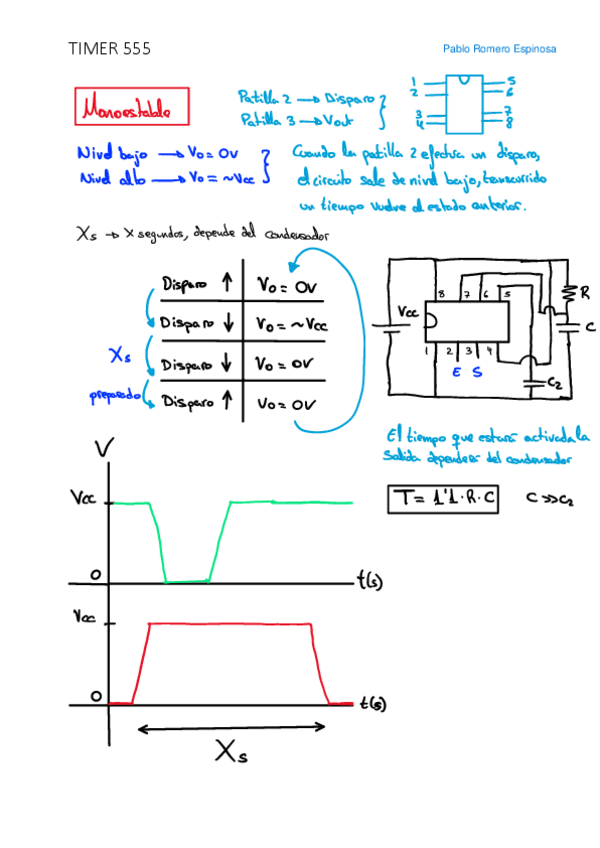 TIMER 555
Pablo Romero Espinosa
Monoestable
Patilla 2 → Disparo
Patilla 3 → Vout
1
2
3
4
5
6
7
8
Nivel bajo → Vo = 0V
Nivel alto → Vo = ~Vcc
Cuando la patilla 2 efectua un disparo,
el circuito sale de nivel bajo, transcurrido
un tiempo vuelve al estado anterior.
Xs → X segundos, depende del condensador
Disparo ↑ Vo = 0V
Disparo ↓ Vo = ~Vcc
Xs
Disparo ↓ Vo = 0V
preparado
Disparo ↑ Vo = 0V
Vcc
8 7 6 5
1 2 3 4
E S
R
C
C2
El tiempo que estará activada la
Salida dependerá del condensador
T = 1'1·R·C
C >> C2
V
Vcc
0
t(s)
Vcc
0
t(s)
Xs